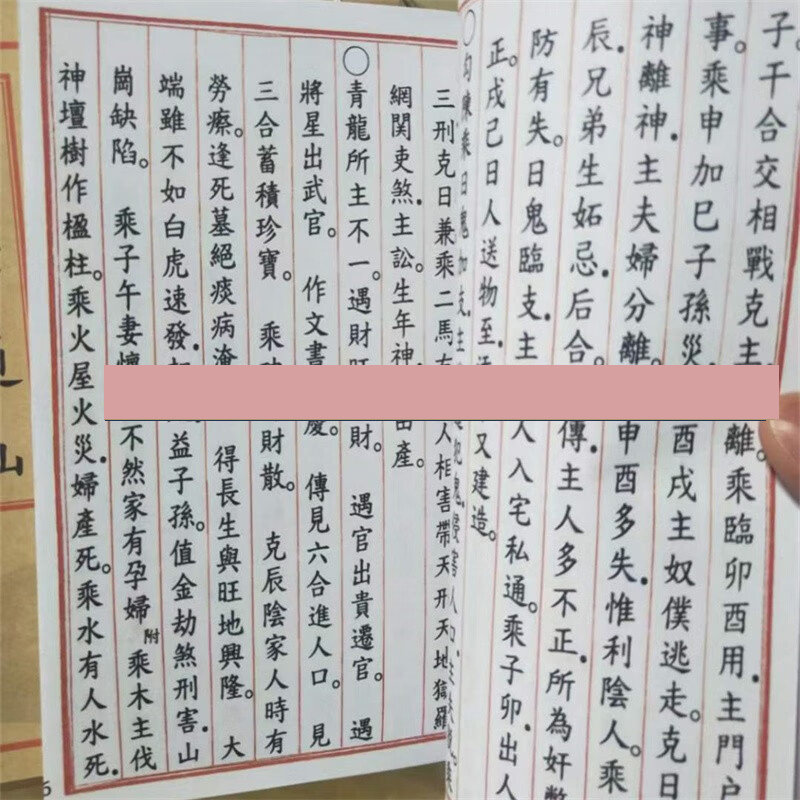 子。干合交相戰克主離。乘臨卯酉用.主門戶
事。乘申加巳子孫災酉戌主奴僕逃走。克日
神離神.主夫婦分離。申酉多失.惟利陰人。乘
辰.兄弟生妬忌.后合。傳.主人多不正.所為奸弊
防有失。日鬼臨支.主人入宅私通。乘子卯.出人
正。戌己日人送物至.又建造。
○勾陳乘日鬼加支.主
三刑克日兼乘二馬人相害帶天刑天地獄羅
網関吏煞.主訟.生年神田產。
○青龍所主不一。遇財旺財。遇官出貴遷官。遇
將星出武官。作文書慶。傳見六合進人口.見
三合蓄積珍寶。乘財散。克辰陰家人時有
勞瘵。逢死墓絕痰病淹得長生與旺地興隆。大
端雖不如白虎速發.益子孫。值金劫煞刑害.山
崗缺陷。乘子午妻懷不然家有孕婦附乘木主伐
神壇樹作楹柱。乘火屋火災.婦產死。乘水有人水死.